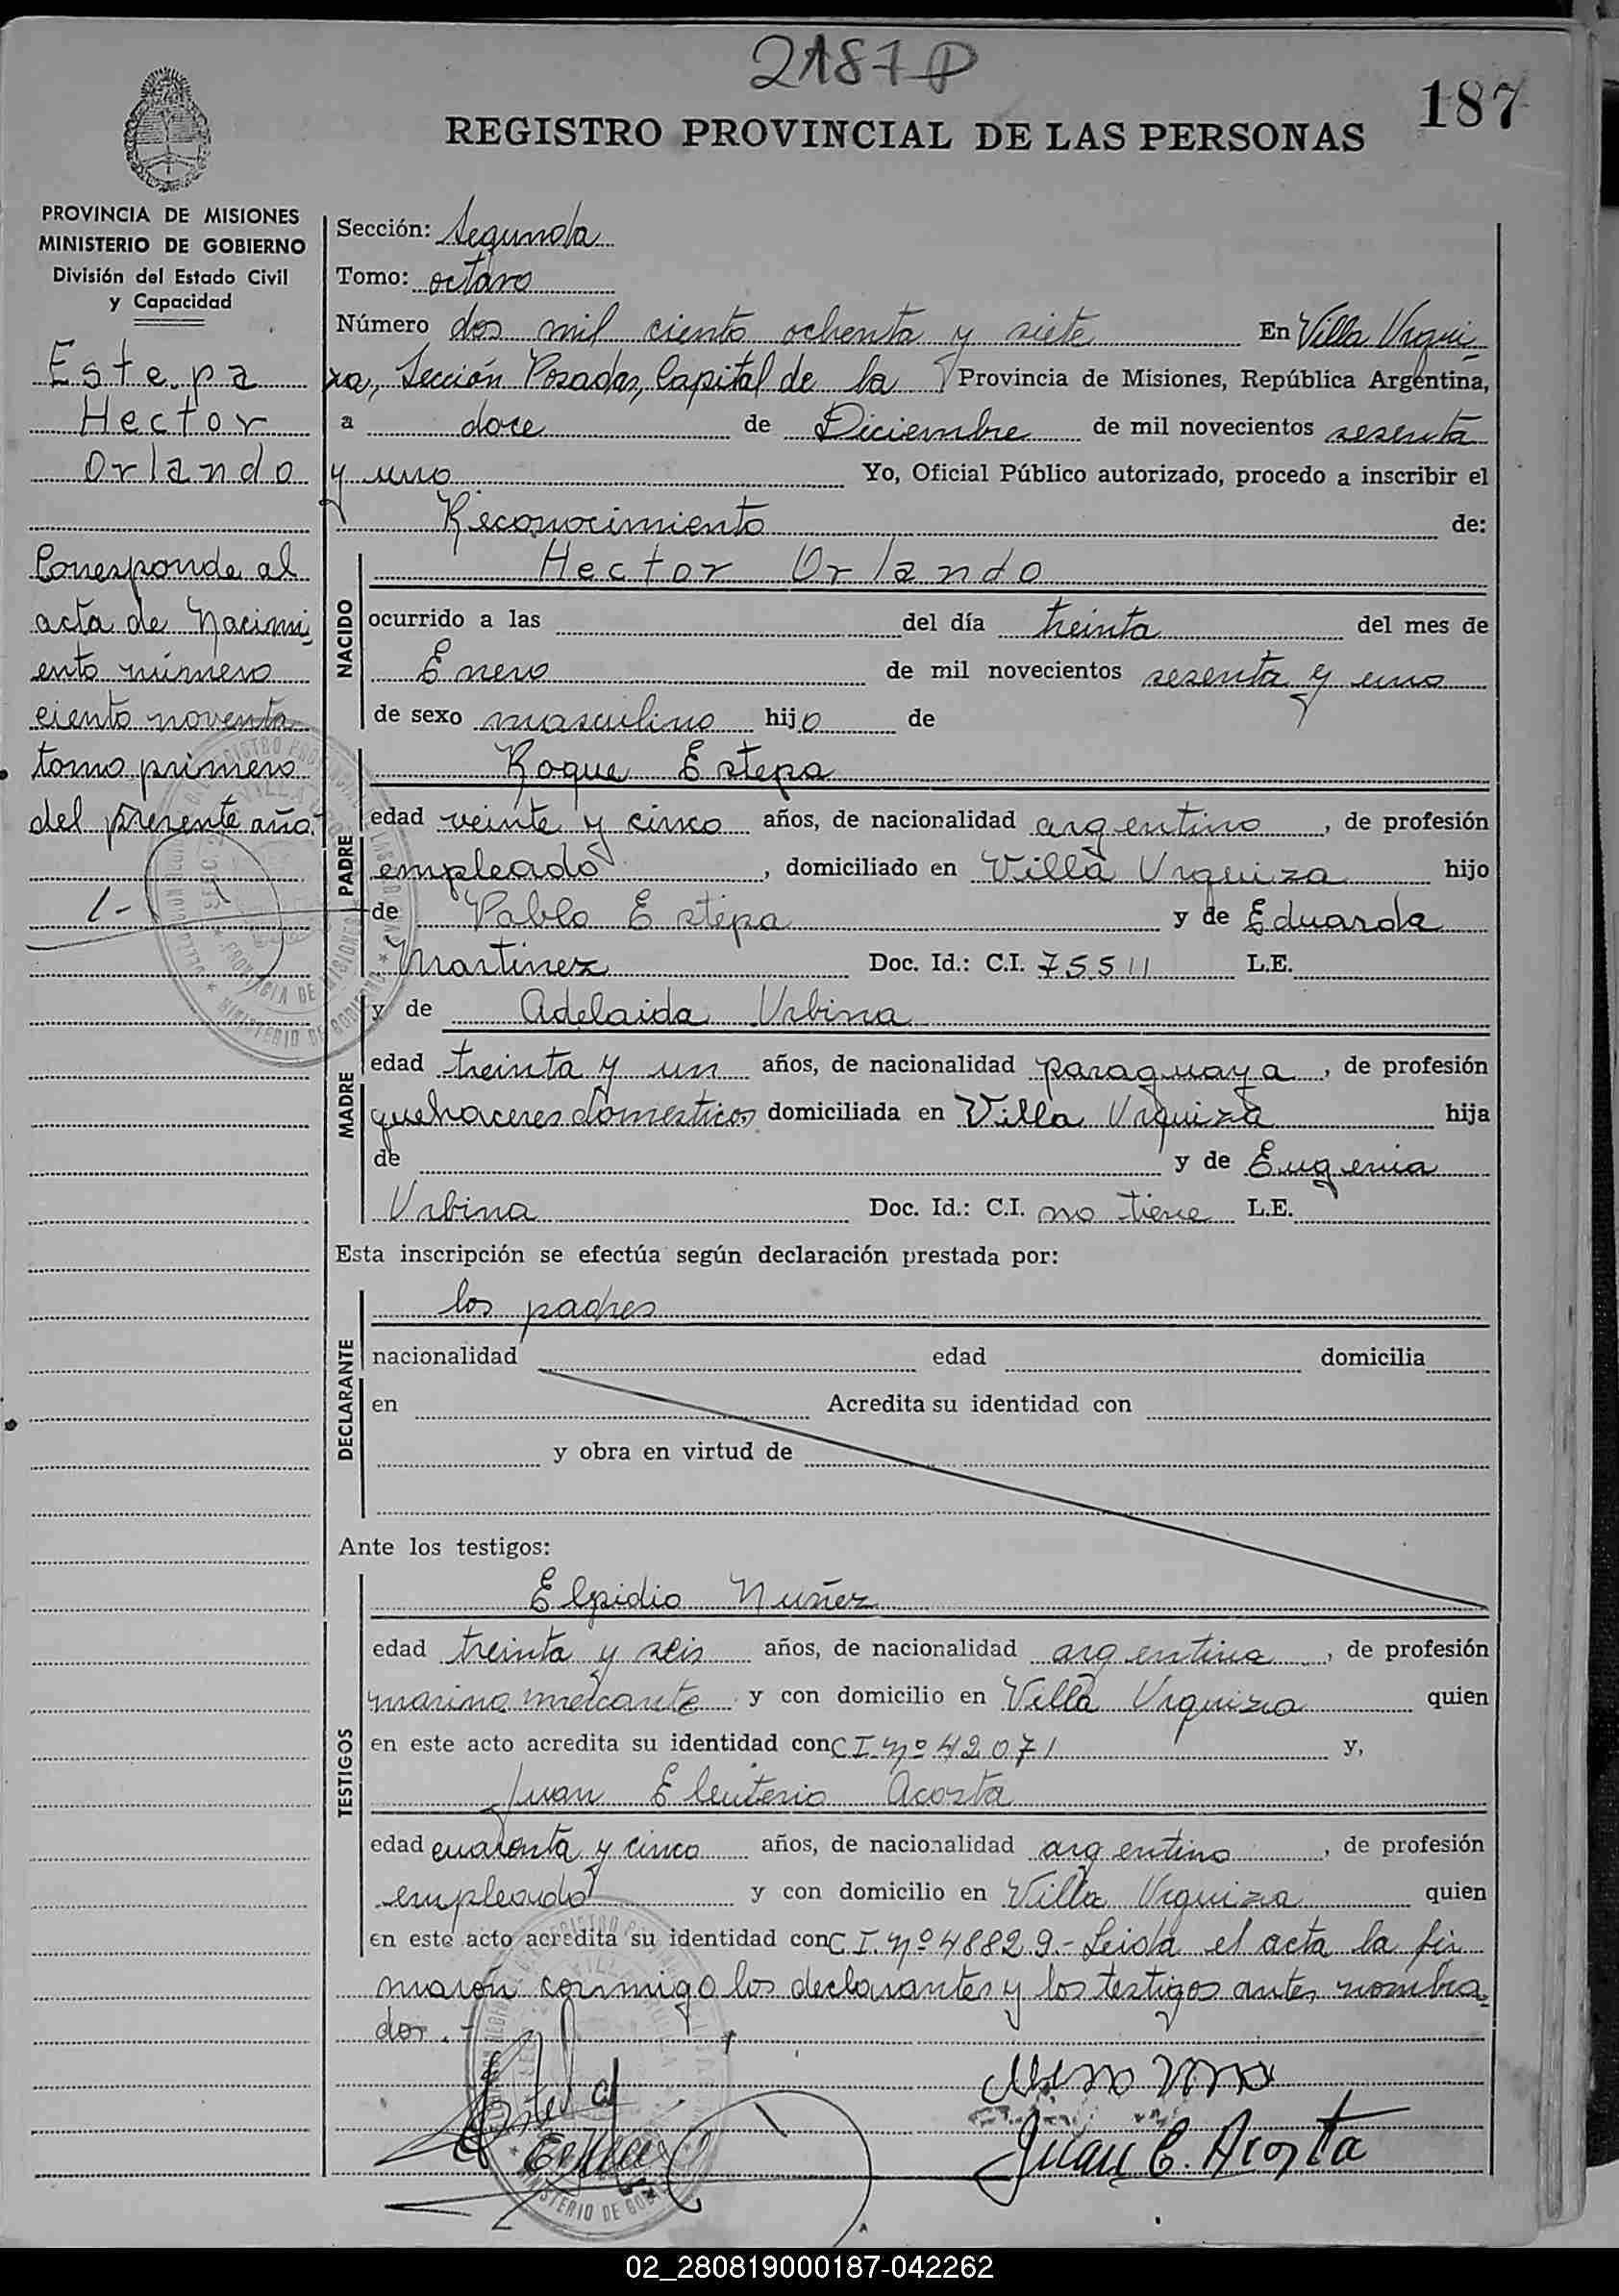 2187 P
187
REGISTRO PROVINCIAL DE LAS PERSONAS
PROVINCIA DE MISIONES
MINISTERIO DE GOBIERNO
División del Estado Civil
y Capacidad
Estepa
Hector
Orlando
Corresponde al
acta de Nacimi
ento número
ciento noventa
tomo primero
del presente año.
1-
Sección: Segunda
Tomo: octavo
Número dos mil ciento ochenta y siete En Villa Urqui-
za, Sección Posadas, Capital de la Provincia de Misiones, República Argentina,
a doce de Diciembre de mil novecientos sesenta
y uno Yo, Oficial Público autorizado, procedo a inscribir el
Reconocimiento de:
NACIDO
Hector Orlando
ocurrido a las del día treinta del mes de
Enero de mil novecientos sesenta y uno
de sexo masculino hijo de
PADRE
Roque Estepa
edad veinte y cinco años, de nacionalidad argentino, de profesión
empleado, domiciliado en Villa Urquiza hijo
de Pablo Estepa y de Eduarda
Martinez Doc. Id.: C.I. 75511 L.E.
MADRE
y de Adelaida Urbina
edad treinta y un años, de nacionalidad paraguaya, de profesión
quehaceres domesticos, domiciliada en Villa Urquiza hija
de y de Eugenia
Urbina Doc. Id.: C.I. no tiene L.E.
Esta inscripción se efectúa según declaración prestada por:
DECLARANTE
los padres
nacionalidad edad domicilia
en Acredita su identidad con
y obra en virtud de
Ante los testigos:
TESTIGOS
Elpidio Nuñez
edad treinta y seis años, de nacionalidad argentina, de profesión
marino mercante y con domicilio en Villa Urquiza quien
en este acto acredita su identidad con C I. nº 42071 y,
Juan Eleuterio Acosta
edad cuarenta y cinco años, de nacionalidad argentino, de profesión
empleado y con domicilio en Villa Urquiza quien
en este acto acredita su identidad con C I. nº 48829.- Leida el acta la fir
marón conmigo los declarantes y los testigos antes nombra-
dos.-
Juan E. Acosta
02_280819000187-042262